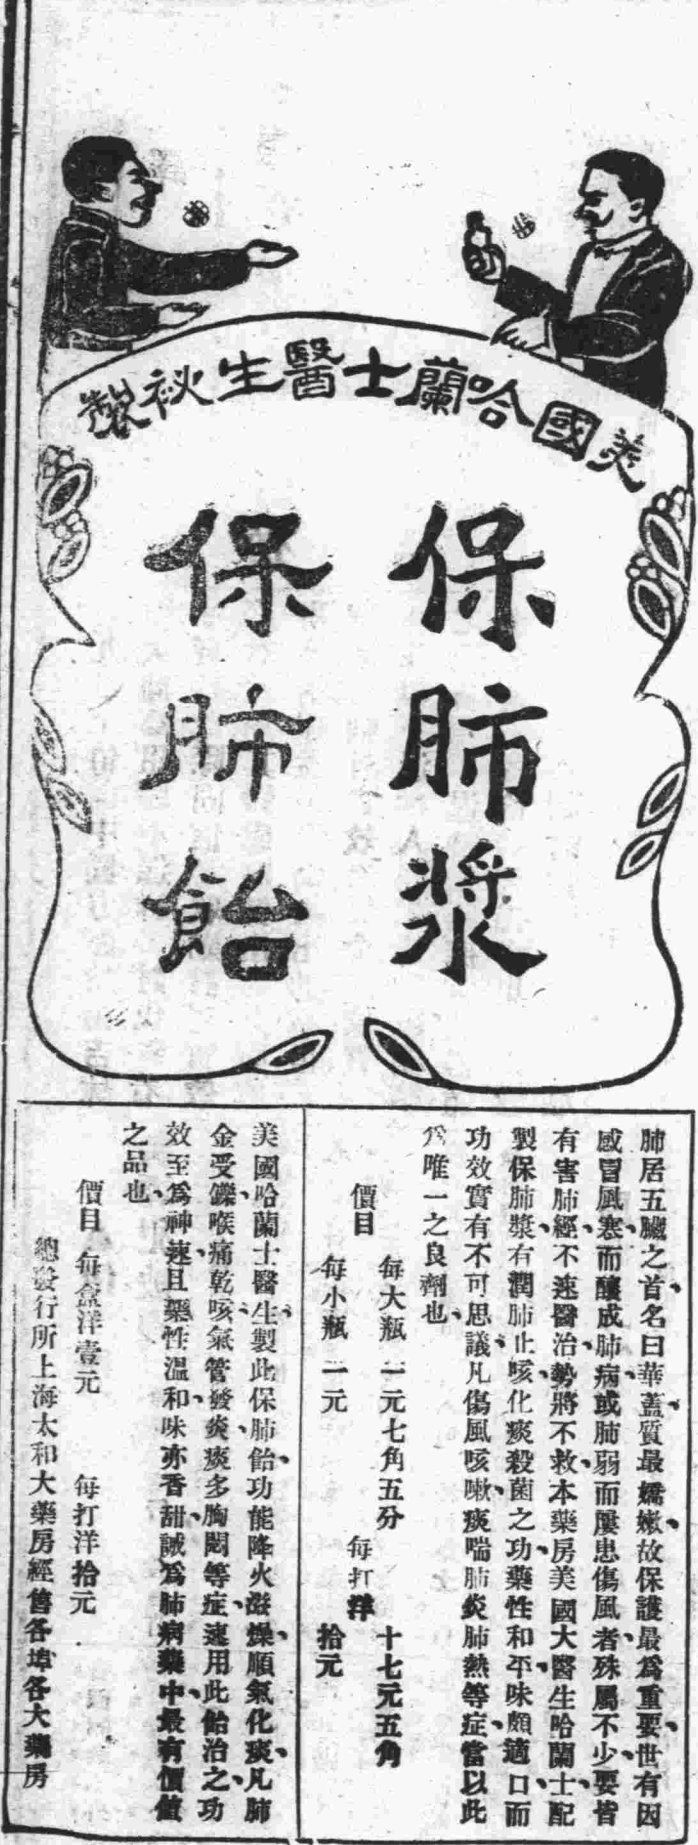 美國哈蘭士醫生秘製
保肺漿
保肺飴
肺居五臟之首名曰華蓋質最嬌嫩故保護最爲重要世有因
感冒風寒而釀成肺病或肺弱而屢患傷風者殊屬不少要皆
有害肺經不速醫治勢將不救本藥房美國大醫生哈蘭士配
製保肺漿有潤肺止咳化痰殺菌之功藥性和平味頗適口而
功效實有不可思議凡傷風咳嗽痰喘肺炎肺熱等症當以此
爲唯一之良劑也
價目 每大瓶 一元七角五分 每打洋 十七元五角
每小瓶 一元 拾元
美國哈蘭士醫生製此保肺飴功能降火滋燥順氣化痰凡肺
金受鑠喉痛乾咳氣管發炎痰多胸悶等症速用此飴治之功
效至爲神速且藥性溫和味亦香甜誠爲肺病藥中最有價值
之品也
價目 每盒洋壹元 每打洋拾元
總發行所上海太和大藥房經售各埠各大藥房